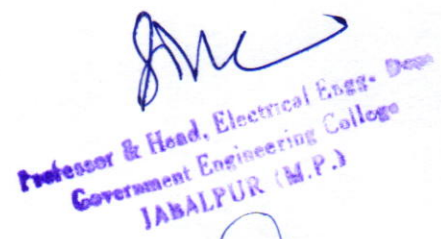 Professor & Head, Electrical Engg. Dept.
Government Engineering College
JABALPUR (M.P.)